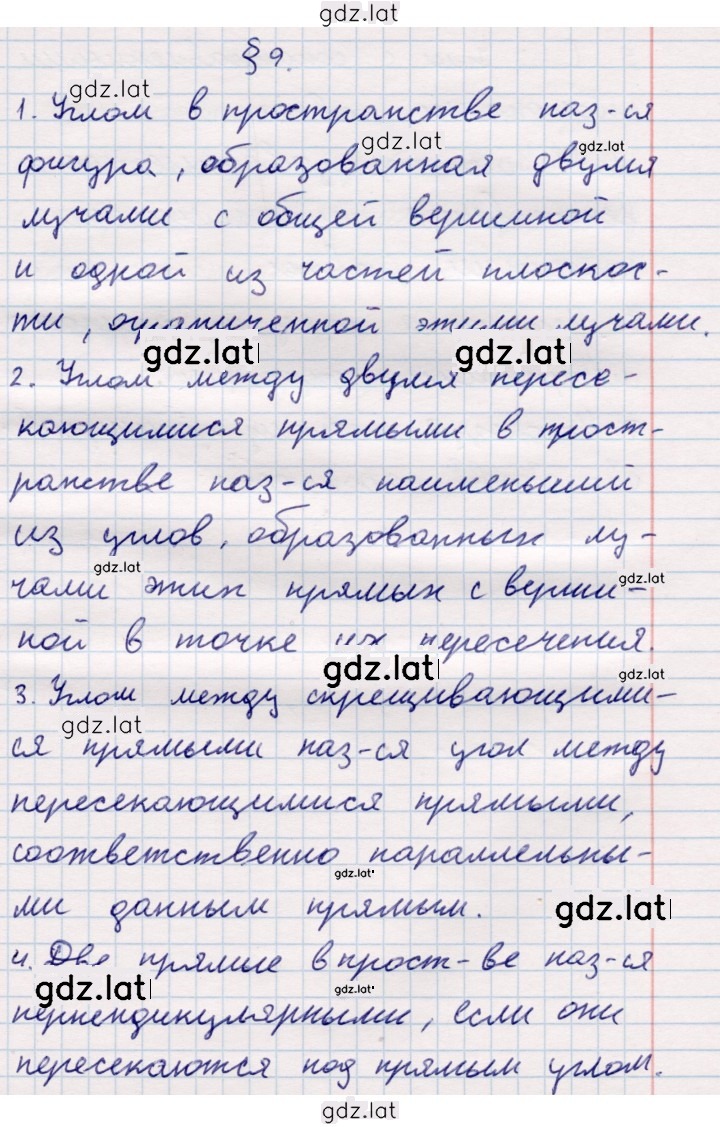 gdz.lat
§ 9.
gdz.lat
1. Углом в пространстве наз-ся
gdz.lat
gdz.lat
фигура, образованная двумя
лучами с общей вершиной
и одной из частей плоскос-
ти, ограниченной этими лучами.
gdz.lat
gdz.lat
2. Углом между двумя пересе-
кающимися прямыми в прост-
ранстве наз-ся наименьший
из углов, образованных лу-
gdz.lat
gdz.lat
чами этих прямых с верши-
ной в точке их пересечения.
gdz.lat
gdz.lat
3. Углом между скрещивающими-
gdz.lat
ся прямыми наз-ся угол между
пересекающимися прямыми,
соответственно параллельны-
gdz.lat
ми данным прямым.
gdz.lat
4. Две прямые в прост-ве наз-ся
gdz.lat
gdz.lat
перпендикулярными, если они
пересекаются под прямым углом.
gdz.lat